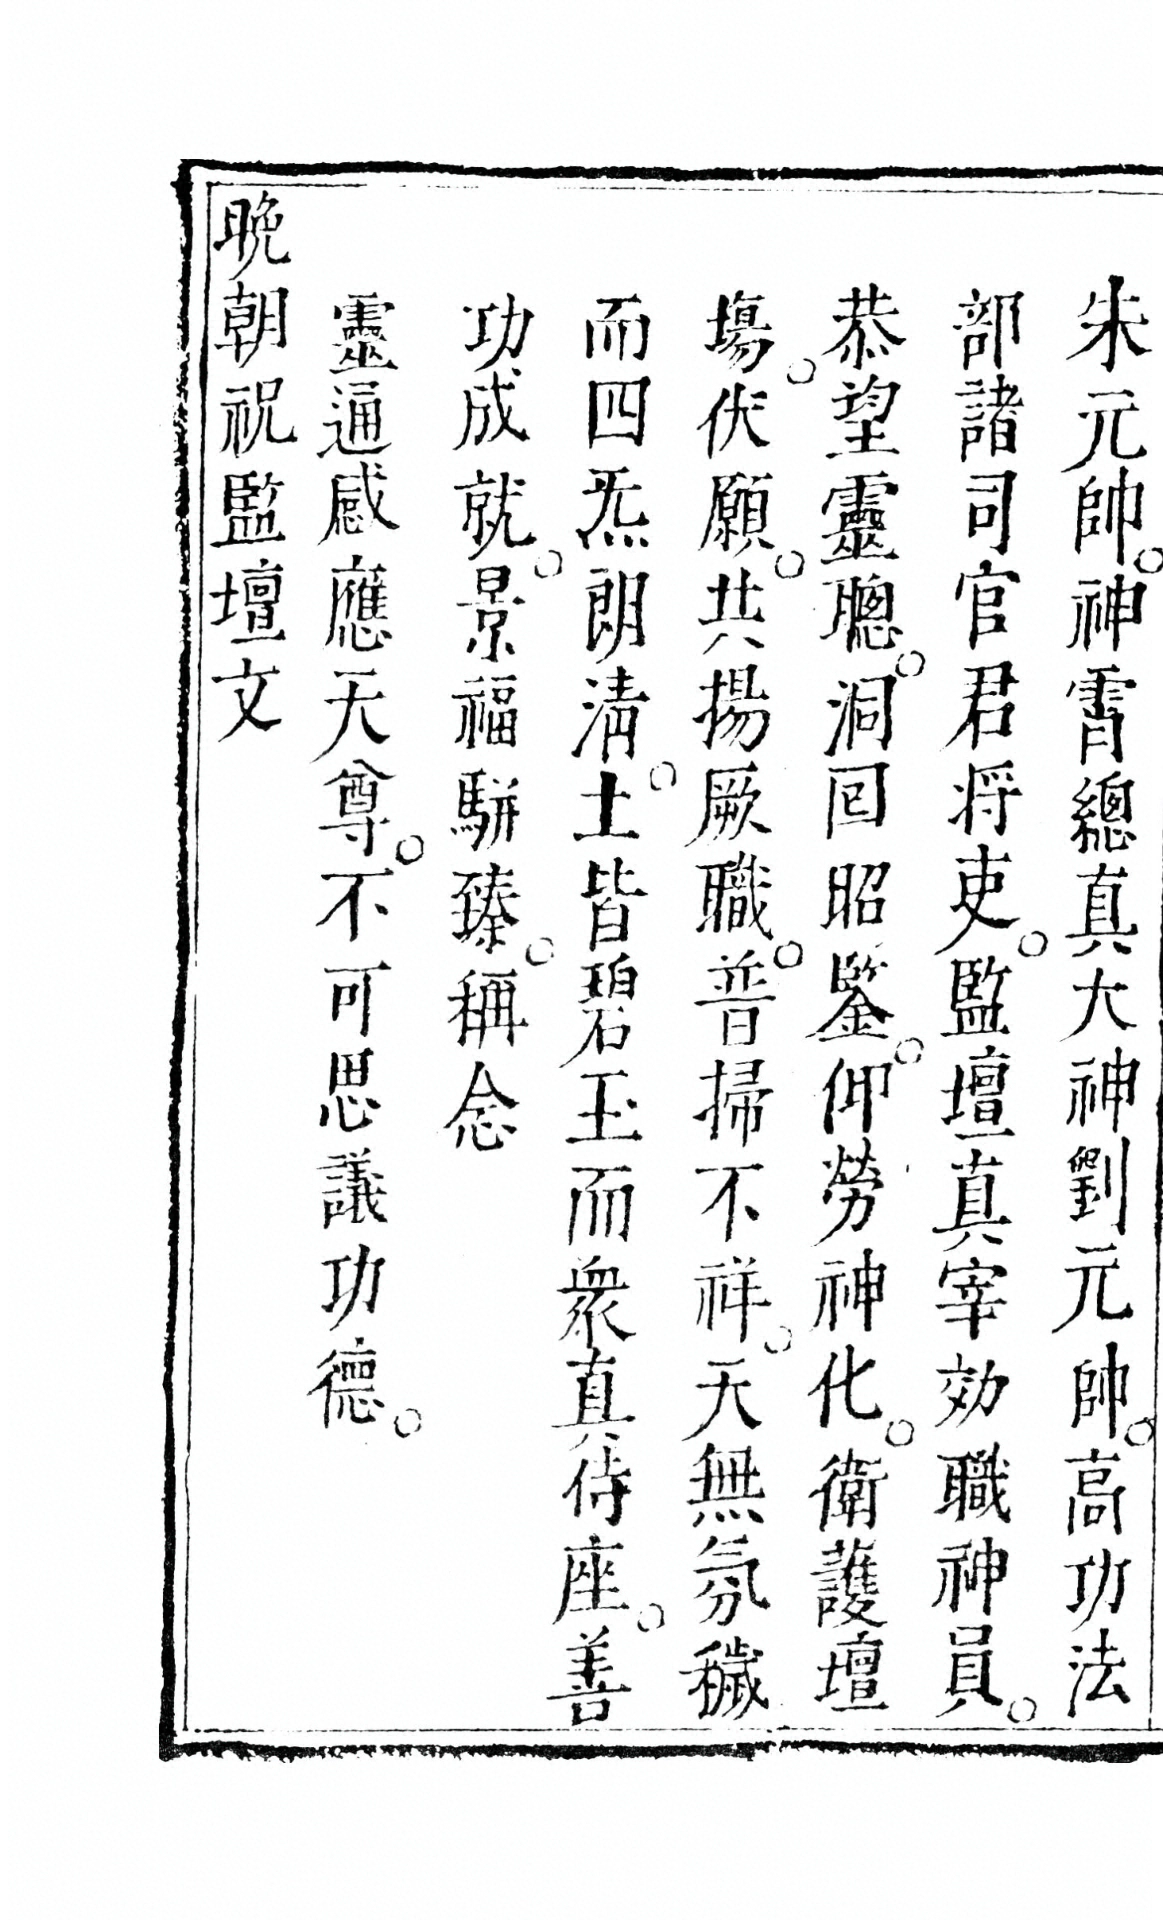 朱元帥。神霄總真大神劉元帥。高功法
部諸司官君将吏。監壇真宰効職神員。
恭望靈聰。洞回昭鑒。仰勞神化。衛護壇
場。伏願。共揚厥職。普掃不祥。天無氛穢
而四炁朗清。土皆碧玉而衆真侍座。善
功成就。景福駢臻。稱念
靈通感應天尊。不可思議功德。
晚朝祝監壇文